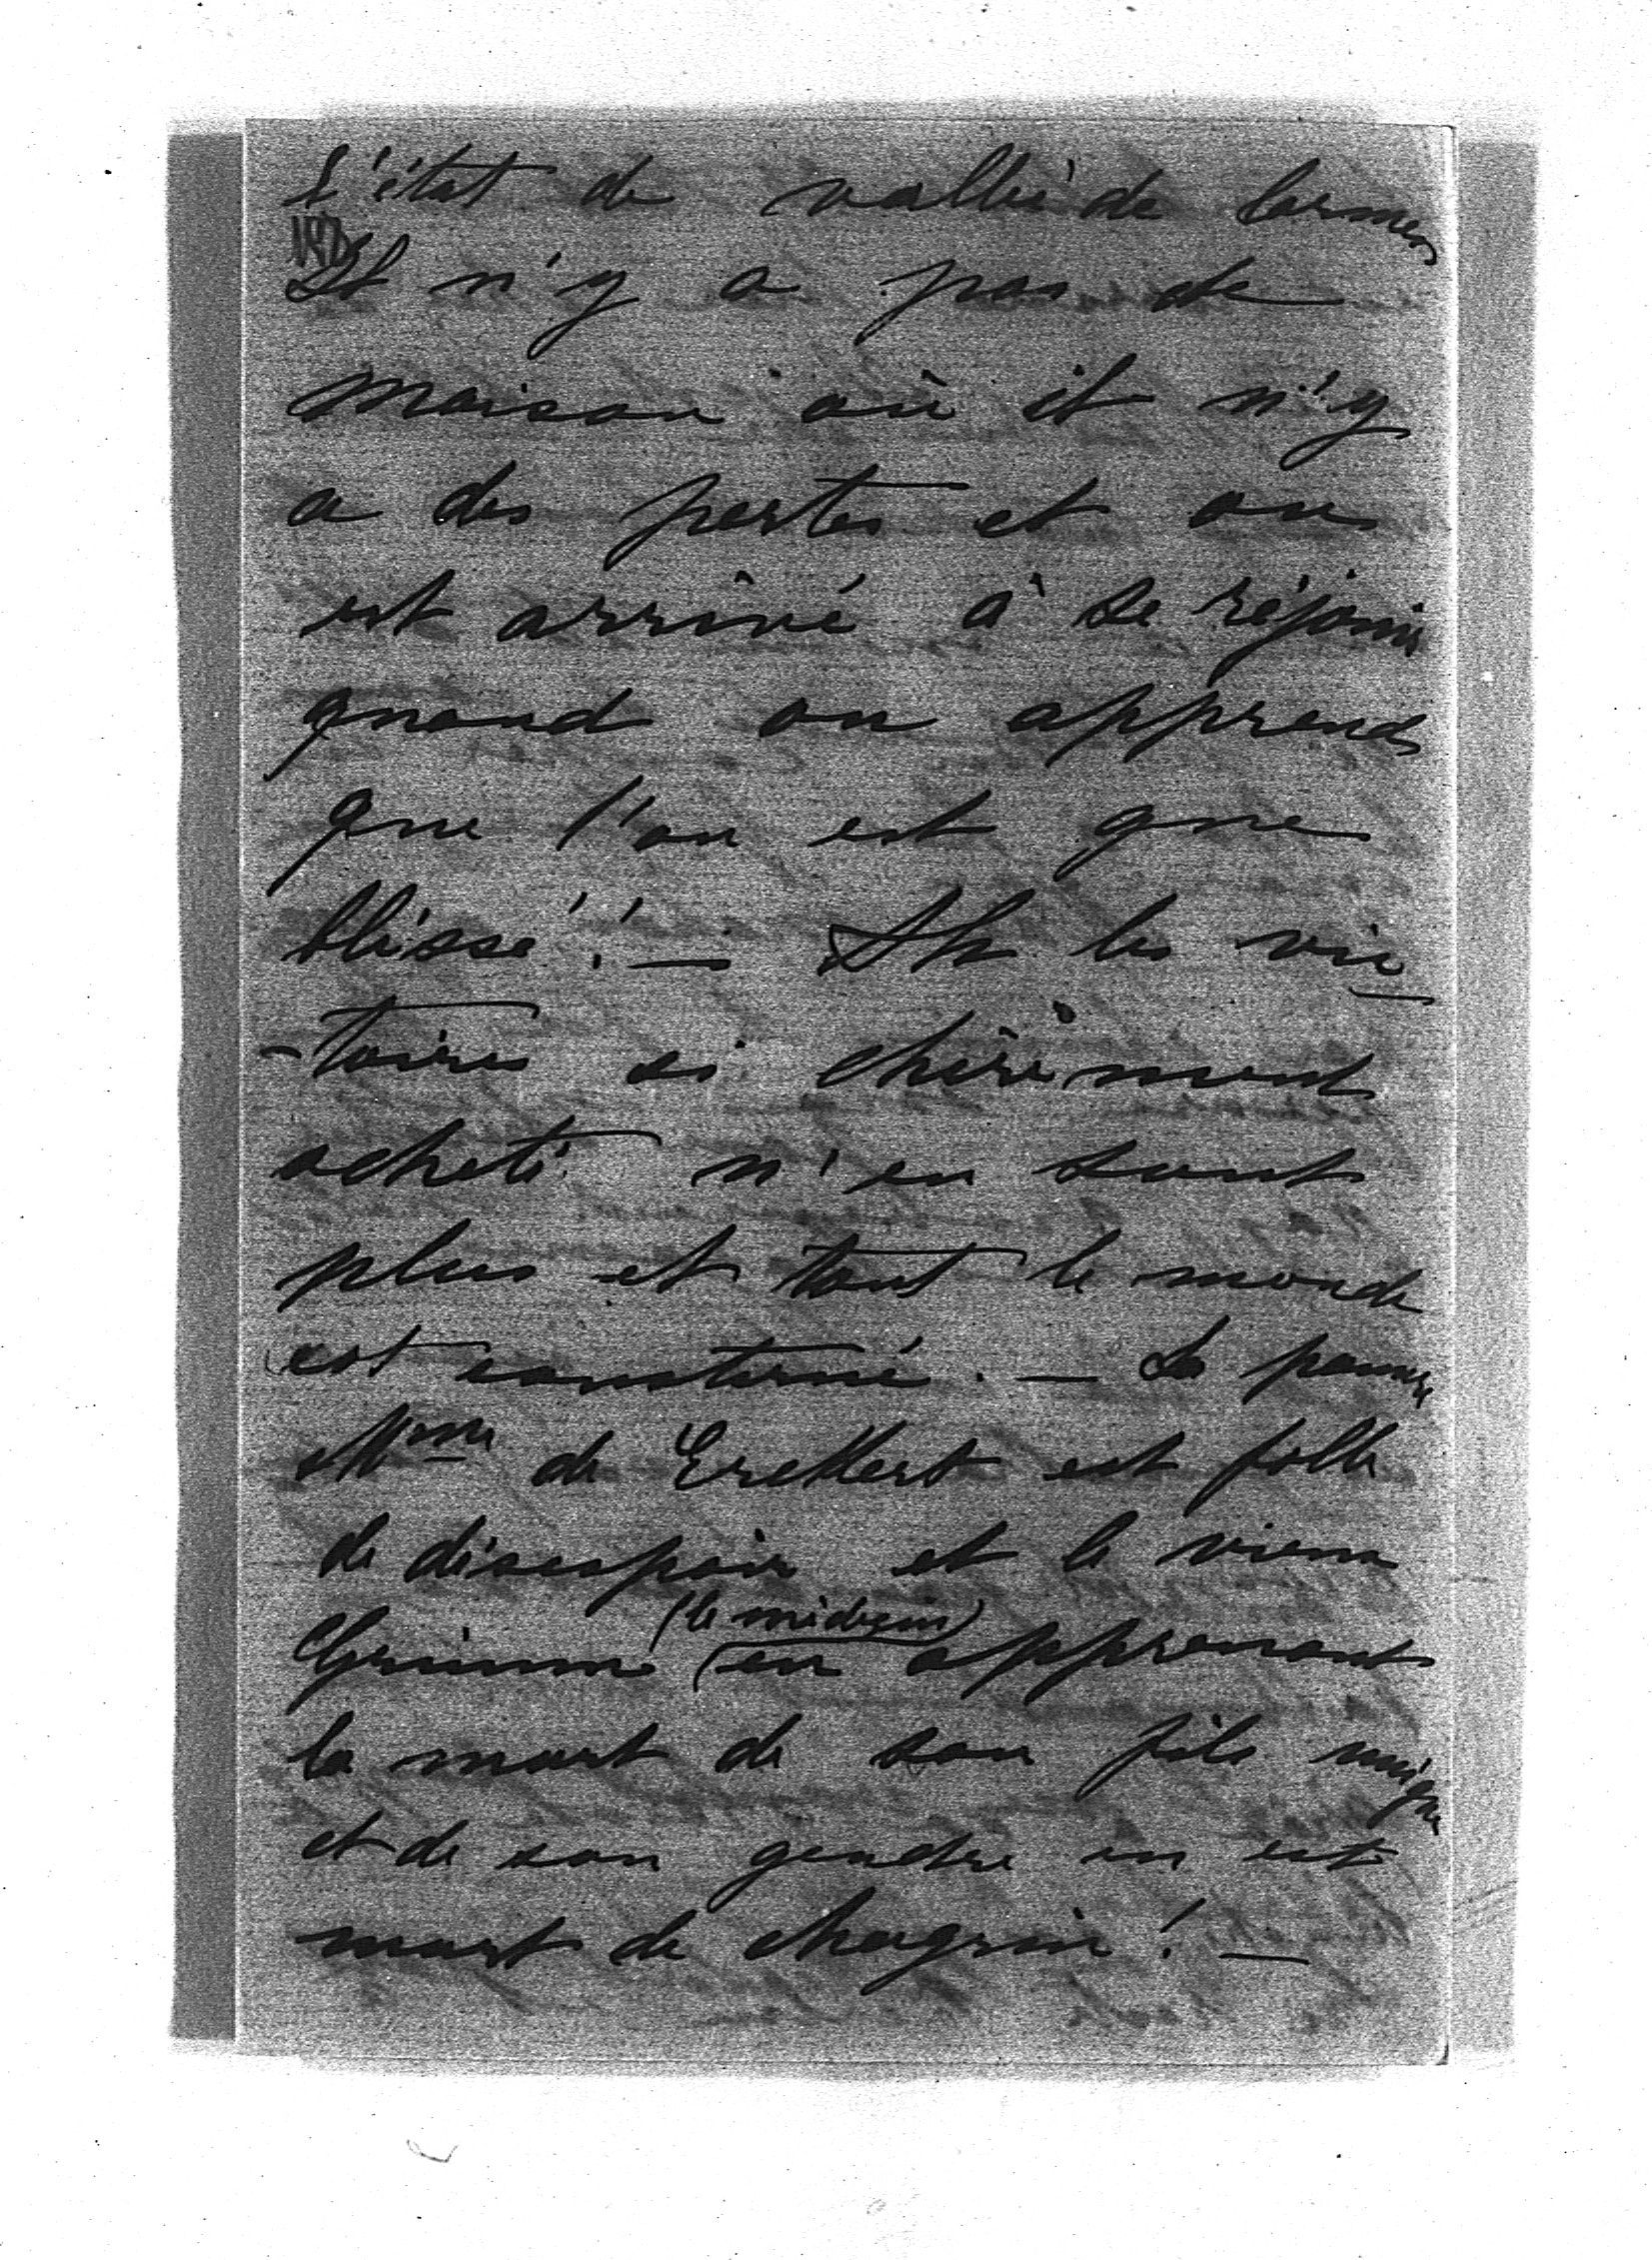 l'état de vallée de larmes
Il n'y a pas de
maison où il n'y
a des pertes et on
est arrivé à se réjouir
quand on apprend
que l'on est que
blessé! — Ah les vic-
-toires si chèrement
acheté n'en sont
plus et tout le monde
est consterné. — La pauvre
Mme de Erckert est folle
de désespoir et le vieux
Grimm (le médecin) en apprenant
la mort de son fils unique
et de son gendre en est
mort de chagrin! —